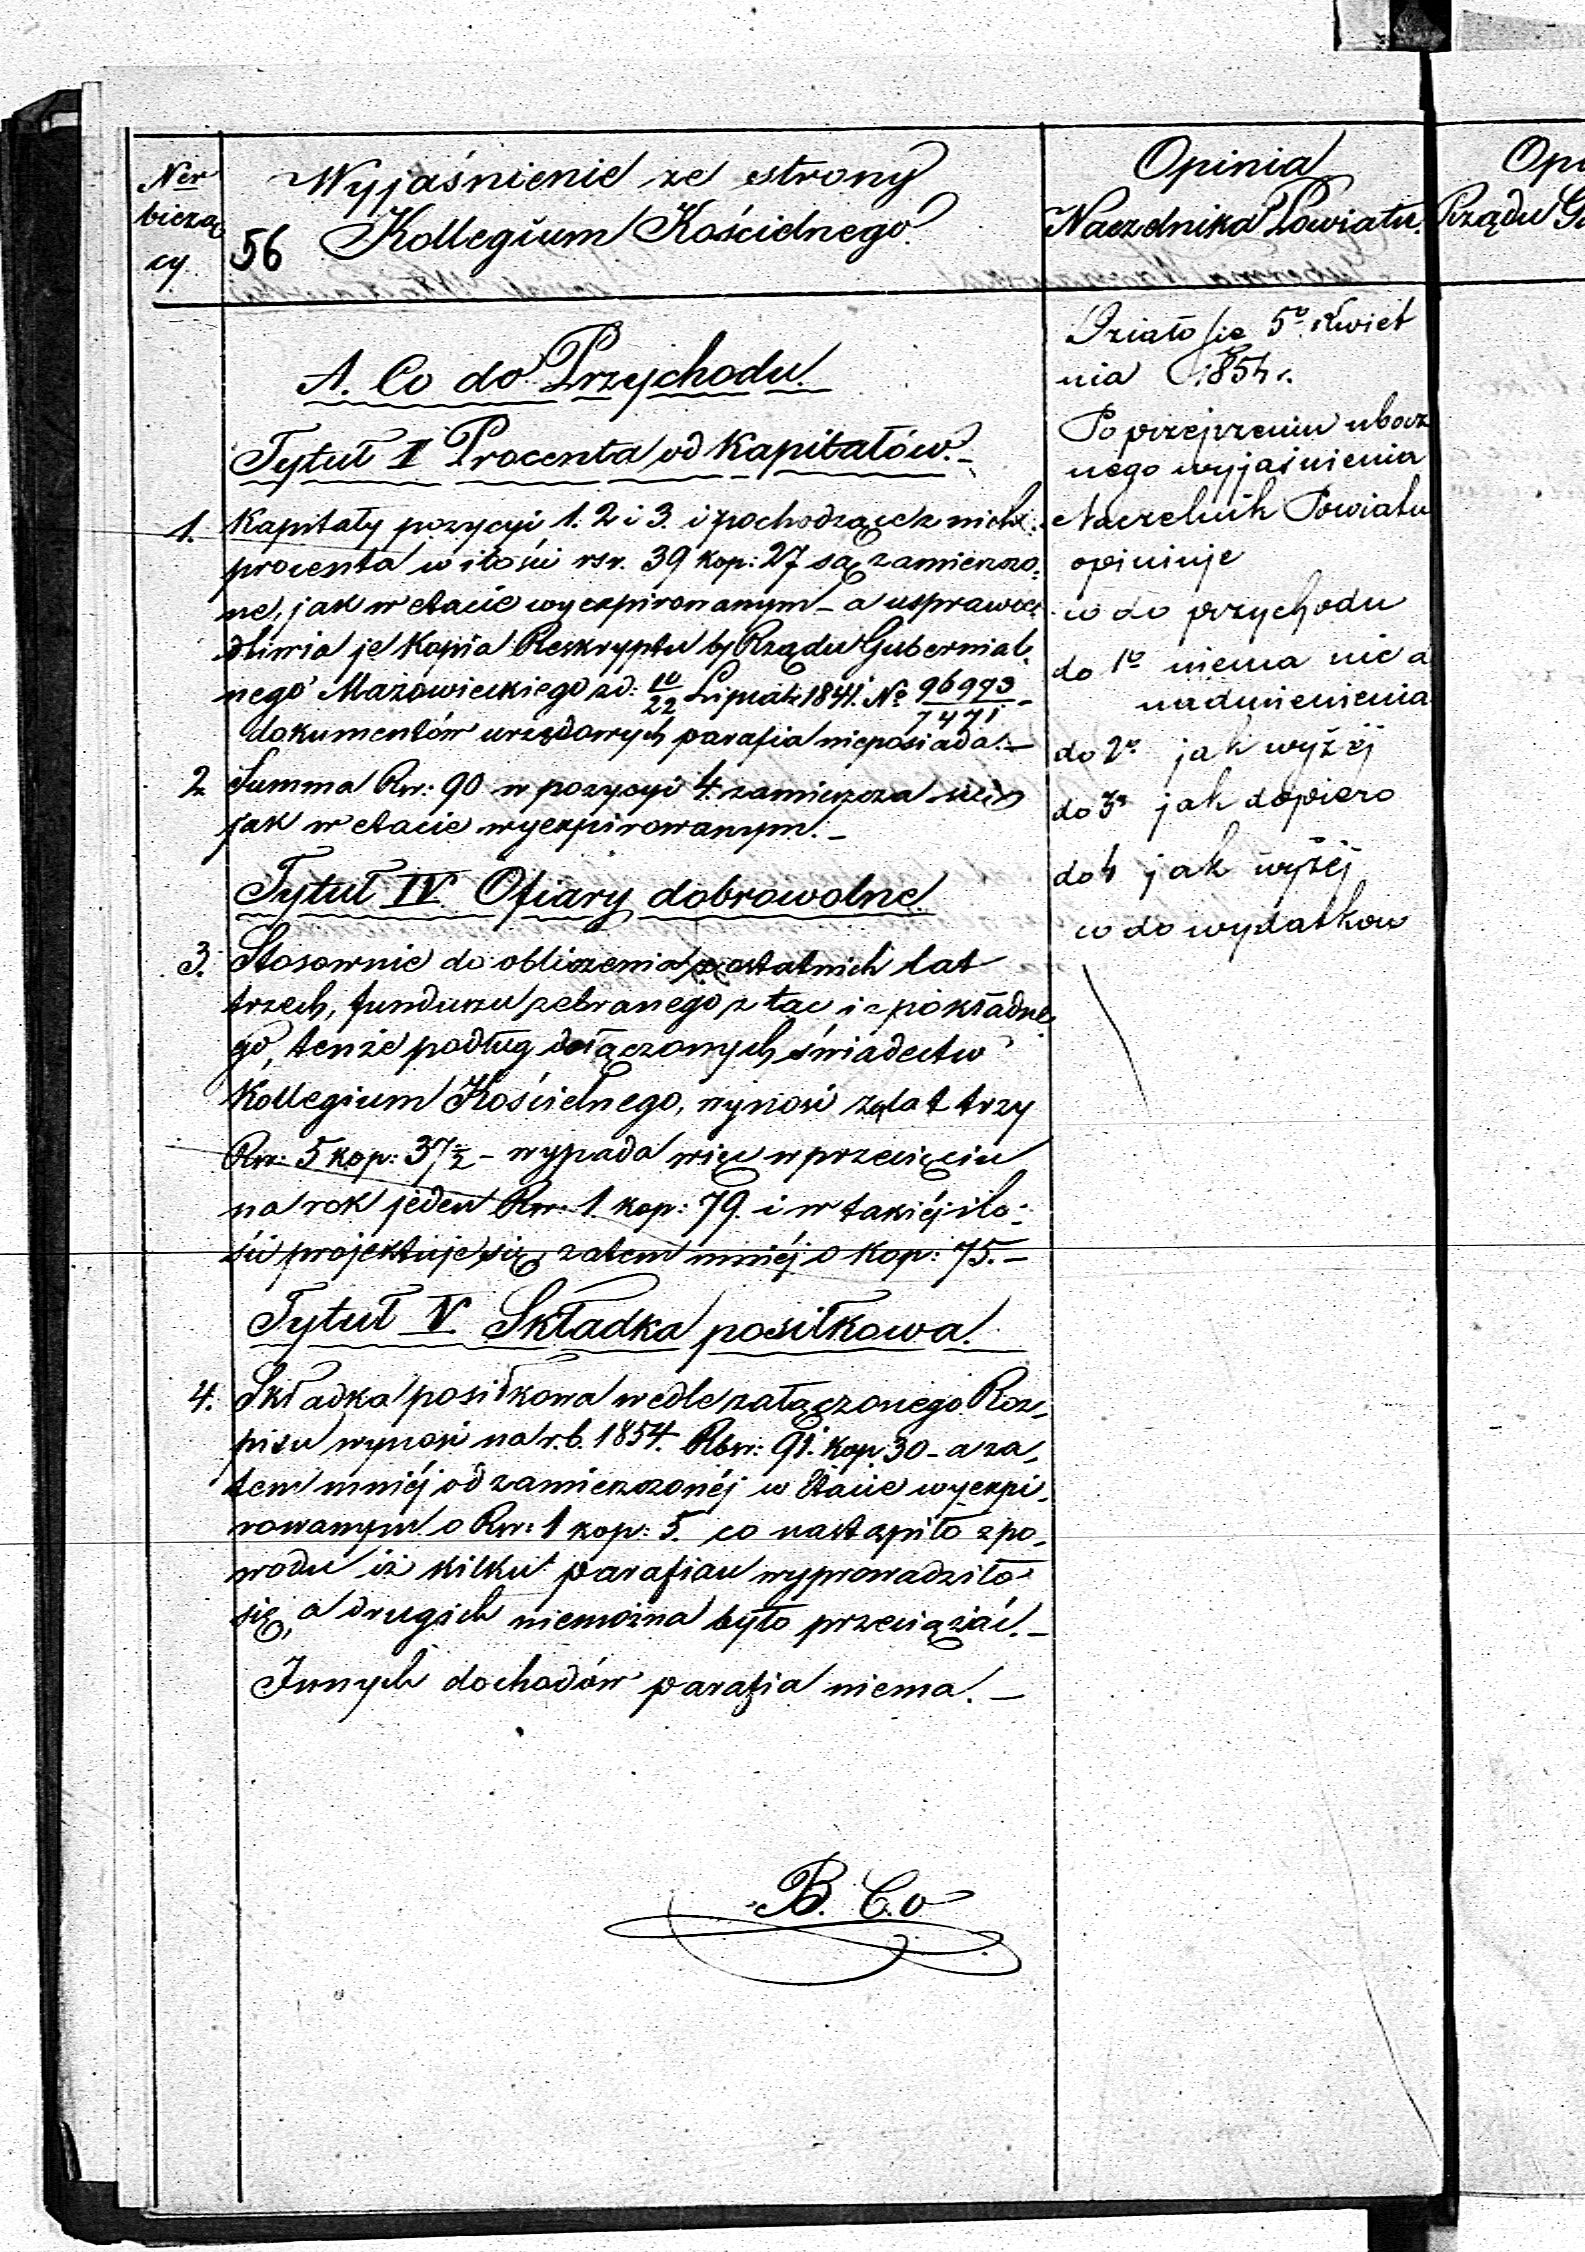 Ner
bieżą
cy
56
Wyjaśnienie ze strony
Kollegium Kościelnego.
Opinia
Naczelnika Powiatu.
Opi
Rządu Gu
A. Co do Przychodu.
Tytuł II Procenta od Kapitałów.-
1. Kapitały pozycyi 1. 2 i 3. i pochodzące z nich
procenta w ilości rsr. 39 kop: 27 są zamieszczo-
ne, jak w etacie wyexpirowanym - a usprawie-
dliwia je Kopia Reskryptu by Rządu Gubernial-
nego Mazowieckiego zd: 10/22 Lipca 1841. No 96993/7471 -
dokumentów urzędowych parafia nieposiada.-
2. Summa Rsr: 90 w pozycyi 4. zamieszcza się
jak w etacie wyexpirowanym.-
Tytuł IV Ofiary dobrowolne.
3. Stosownie do obliczenia z ostatnich lat
trzech, funduszu zebranego z tac i z pokładne-
go, tenże podług dołączonych świadectw
Kollegium Kościelnego, wynosi za lat trzy
Rsr: 5 kop: 37½ - wypada więc w przecięciu
na rok jeden Rsr: 1. kop: 79. i w takiéj ilo-
ści projektuje się, zatem mniéj o kop: 75.-
Tytuł V Składka posiłkowa.
4. Składka posiłkowa wedle załączonego Roz-
pisu wynosi na r. b. 1854. Rbsr: 91. kop 30 - a za-
tem mniéj od zamieszczonéj w Etacie wyexpi-
rowanym o Rsr: 1 kop: 5. co nastąpiło z po-
wodu iż kilku parafian wyprowadziło
się, a drugich niemożna było przeciążać.-
Innych dochodów parafia niema.-
B. Co
Działo się 5o Kwiet
nia 1854 r.
Po przejrzeniu ubocz
nego wyjaśnienia
Naczelnik Powiatu
opiniuje
co do przychodu
do 1o niema nic do
nadmienienia
do 2o jak wyżéj
do 3o jak dopiero
do 4 jak wyżéj
co do wydatkow